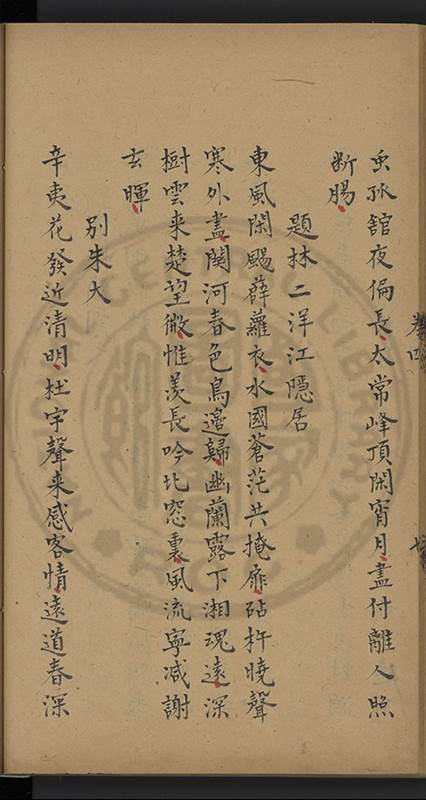 虫孤舘夜偏長太常峰頂閑宵月盡付離人照
断腸
題林二洋江隱居
東風閑颺薜蘿衣水國蒼茫共掩扉砧杵曉聲
寒外盡關河春色鳥邊歸幽蘭露下湘魂遠深
樹雲来楚望微惟羡長吟北窓裏風流寧减謝
玄暉
別朱大
辛夷花發近清明杜宇聲来感客情遠道春深
卷四